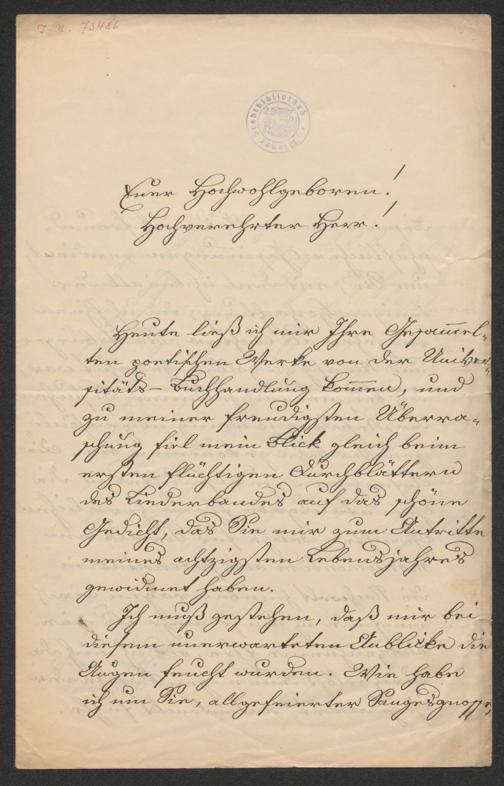 J. N. 75486
Wiener Stadtbibliothek
Euer Hochwohlgeboren!
Hochverehrter Herr!
Heute ließ ich mir Ihre Gesam̄el-
ten poetischen Werke von der Univer-
sitäts-Buchhandlung kom̄en, und
zu meiner freudigsten Überra-
schung fiel mein Blick gleich beim
ersten flüchtigen Durchblättern
des Liederbandes auf das schöne
Gedicht, das Sie mir zum Antritte
meines achtzigsten Lebensjahres
gewidmet haben.
Ich muß gestehen, daß mir bei
diesem unerwarteten Anblicke die
Augen feucht wurden. Wie habe
ich um Sie, allgefeierter Sangesgenosse,